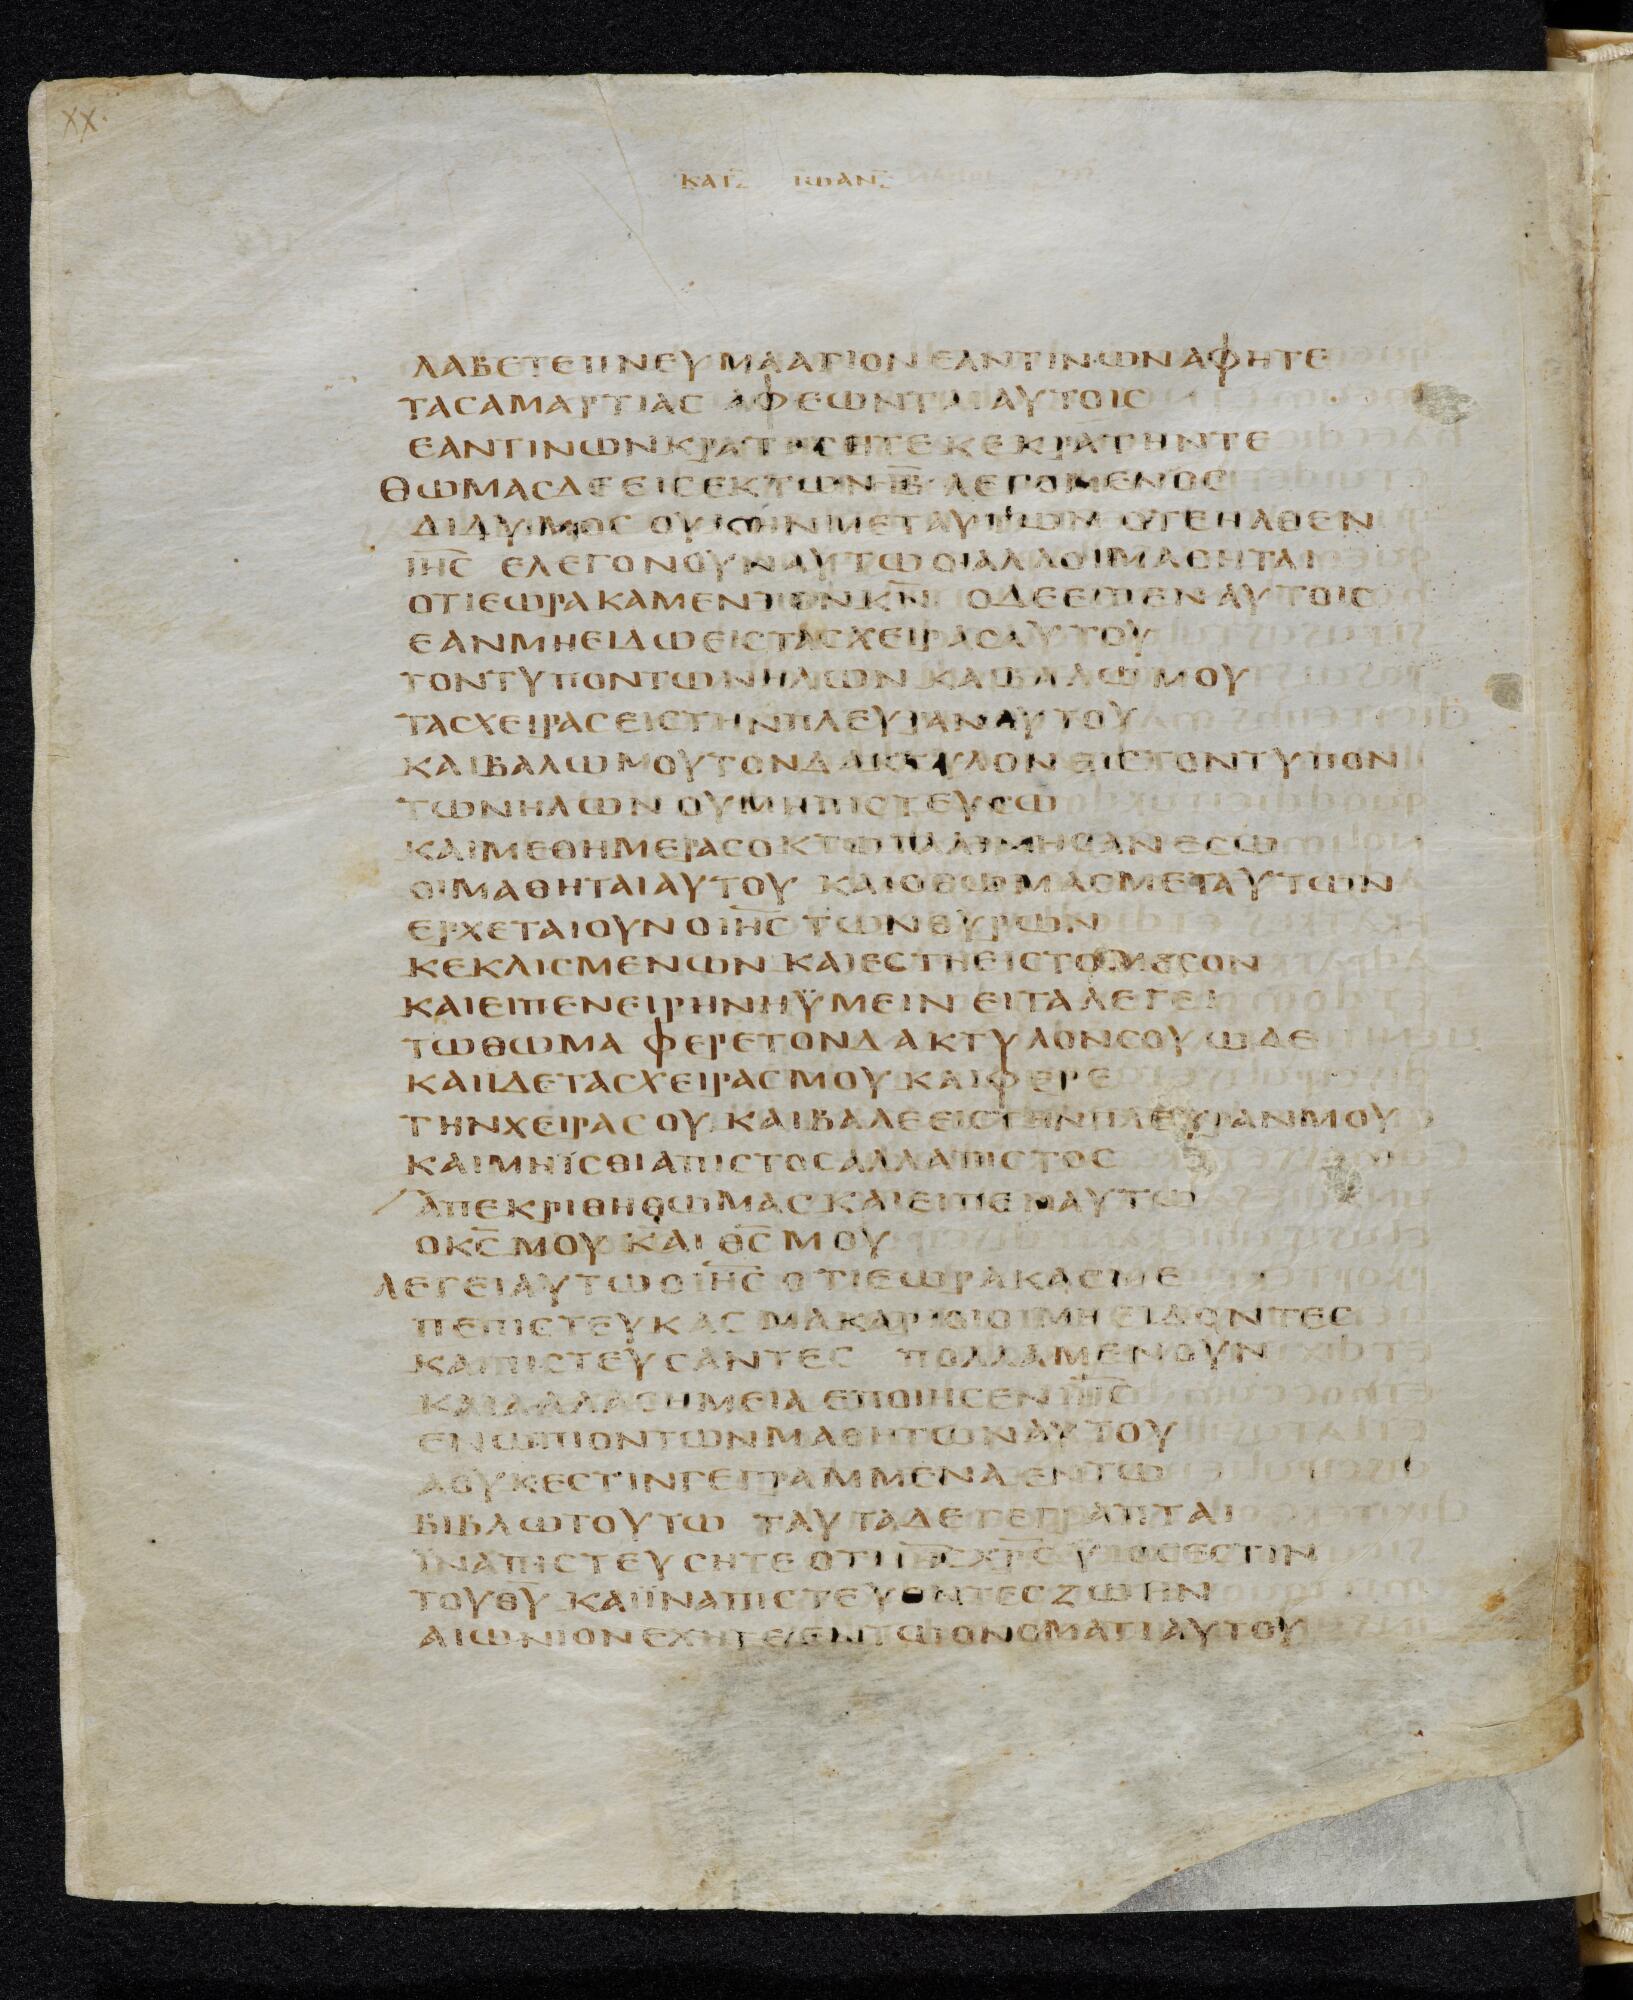 XX.
ΚΑΤ ΙΩΑΝ
ΛΑΒΕΤΕΠΝΕΥΜΑΑΓΙΟΝ ΕΑΝΤΙΝΩΝΑΦΗΤΕ
ΤΑСΑΜΑΡΤΙΑС ΑΦΕΩΝΤΑΙΑΥΤΟΙС
ΕΑΝΤΙΝΩΝΚΡΑΤΗСΗΤΕΚΕΚΡΑΤΗΝΤΕ
ΘΩΜΑСΔΕΕΙСΕΚΤΩΝΙΒ̅ ΛΕΓΟΜΕΝΟС
ΔΙΔΥΜΟС ΟΥΚΗΝΜΕΤΑΥΤΩΝ ΟΤΕΗΛΘΕΝ
ΙΗ̅С ΕΛΕΓΟΝΟΥΝΑΥΤΩΟΙΑΛΛΟΙΜΑΘΗΤΑΙ
ΟΤΙΕΩΡΑΚΑΜΕΝΤΟΝΚ̅Ν ΟΔΕΕΙΠΕΝΑΥΤΟΙС
ΕΑΝΜΗΕΙΔΩΕΙСΤΑСΧΕΙΡΑСΑΥΤΟΥ
ΤΟΝΤΥΠΟΝΤΩΝΗΛΩΝ ΚΑΙΒΑΛΩ ΜΟΥ
ΤΑСΧΕΙΡΑСΕΙСΤΗΝΠΛΕΥΡΑΝΑΥΤΟΥ
ΚΑΙΒΑΛΩΜΟΥΤΟΝΔΑΚΤΥΛΟΝ ΕΙСΤΟΝΤΥΠΟΝ
ΤΩΝΗΛΩΝ ΟΥΜΗΠΙСΤΕΥСΩ
ΚΑΙΜΕΘΗΜΕΡΑСΟΚΤΩΠΑΛΙΝΗСΑΝΕСΩ
ΟΙΜΑΘΗΤΑΙΑΥΤΟΥ ΚΑΙΟΘΩΜΑСΜΕΤΑΥΤΩΝ
ΕΡΧΕΤΑΙΟΥΝΟΙΗ̅С ΤΩΝΘΥΡΩΝ
ΚΕΚΛΙСΜΕΝΩΝ ΚΑΙΕСΤΗΕΙСΤΟΜΕСΟΝ
ΚΑΙΕΙΠΕΝΕΙΡΗΝΗΫΜΕΙΝ ΕΙΤΑΛΕΓΕΙ
ΤΩΘΩΜΑ ΦΕΡΕΤΟΝΔΑΚΤΥΛΟΝСΟΥΩΔΕ
ΚΑΙΙΔΕΤΑСΧΕΙΡΑСΜΟΥΚΑΙΦΕΡΕ
ΤΗΝΧΕΙΡΑСΟΥ ΚΑΙΒΑΛΕΕΙСΤΗΝΠΛΕΥΡΑΝΜΟΥ
ΚΑΙΜΗΪСΘΙΑΠΙСΤΟСΑΛΛΑΠΙСΤΟС
ΑΠΕΚΡΙΘΗΘΩΜΑСΚΑΙΕΙΠΕΝΑΥΤΩ
ΟΚ̅С ΜΟΥ ΚΑΙ Θ̅СΜΟΥ
ΛΕΓΕΙΑΥΤΩΟΙΗ̅С ΟΤΙΕΩΡΑΚΑСΜΕ
ΠΕΠΙСΤΕΥΚΑС ΜΑΚΑΡΙΟΙΟΙΜΗΕΙΔΟΝΤΕС
ΚΑΙΠΙСΤΕΥСΑΝΤΕС ΠΟΛΛΑΜΕΝΟΥΝ
ΚΑΙΑΛΛΑСΗΜΕΙΑ ΕΠΟΙΗСΕΝΙΗ̅С
ΕΝΩΠΙΟΝΤΩΝΜΑΘΗΤΩΝΑΥΤΟΥ
ΑΟΥΚΕСΤΙΝΓΕΓΡΑΜΜΕΝΑΕΝΤΩ
ΒΙΒΛΩΤΟΥΤΩ ΤΑΥΤΑΔΕΓΕΓΡΑΠΤΑΙ
ΪΝΑΠΙСΤΕΥСΗΤΕ ΟΤΙΙΗ̅СΧΡ̅СΫΙΟСΕСΤΙΝ
ΤΟΥΘ̅Υ ΚΑΙΪΝΑΠΙСΤΕΥΟΝΤΕСΖΩΗΝ
ΑΙΩΝΙΟΝΕΧΗΤΕΕΝΤΩΟΝΟΜΑΤΙΑΥΤΟΥ